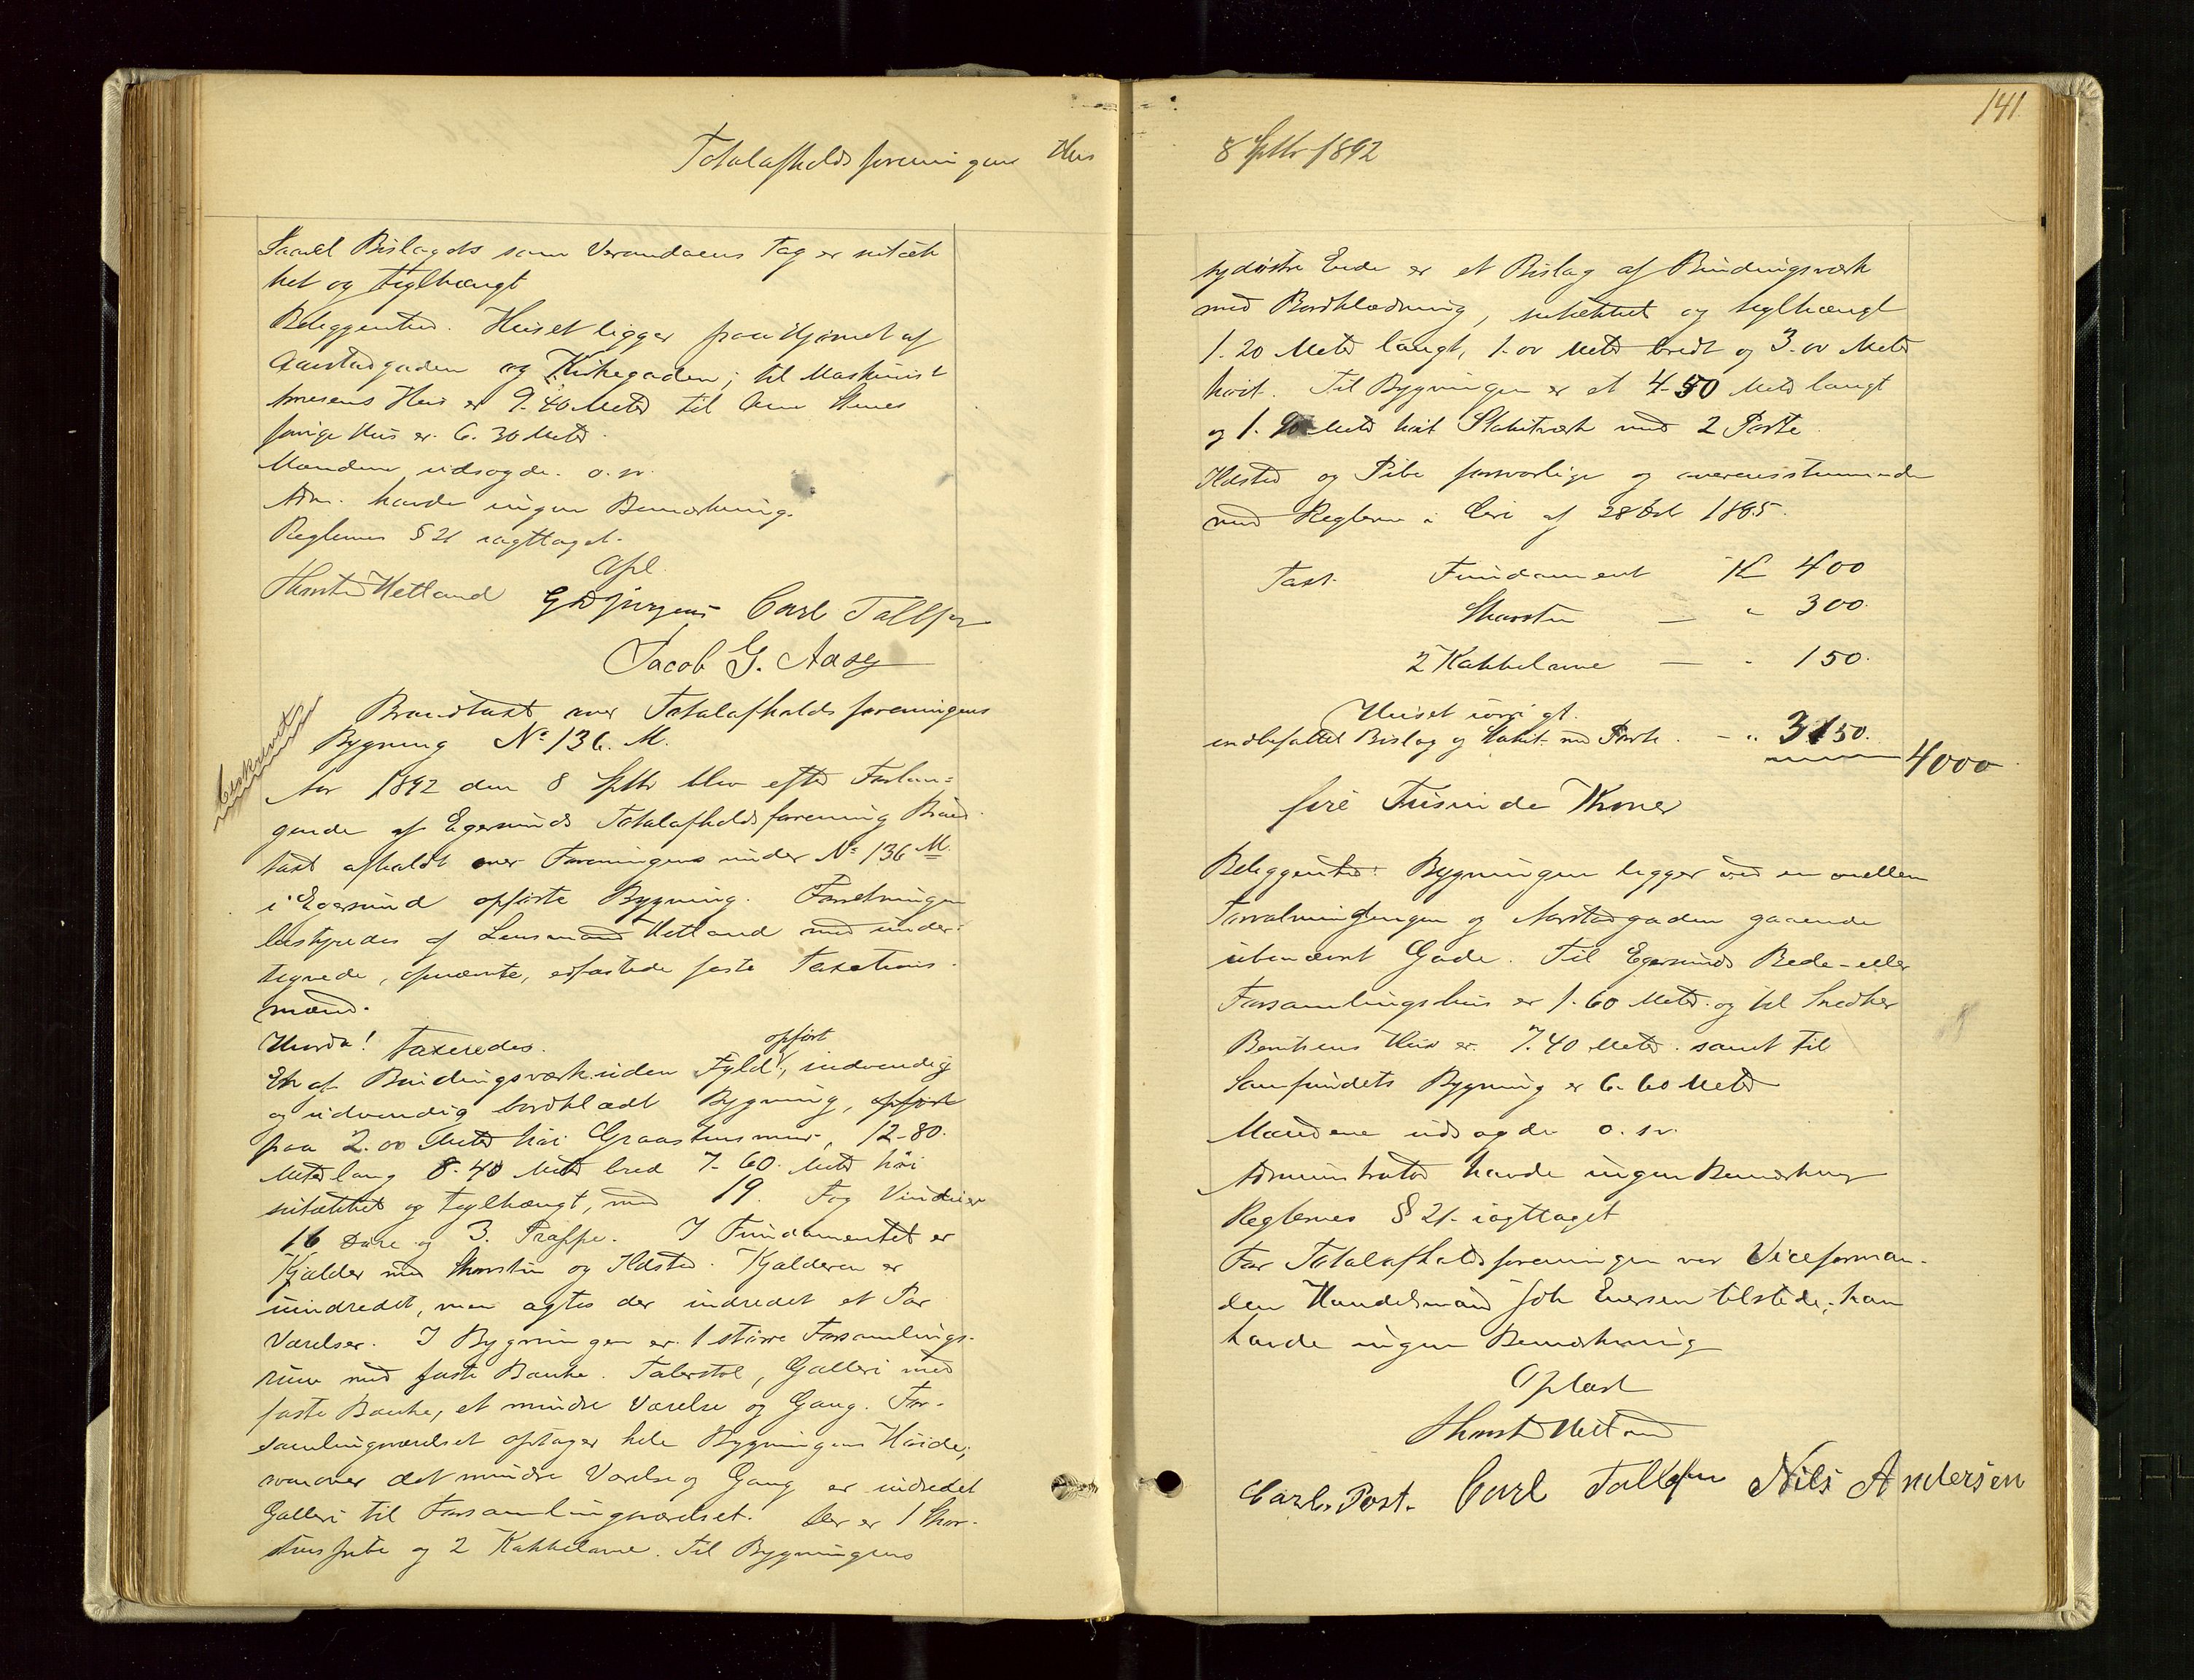 Totalafholdsforeningens Hus
Saavel Bislagets som Verandaens Tag er sutæk
ket og teglhængt
Beliggenhed. Huset ligger paa Hjørnet af
Aarstadgaden og Kirkegaden; til Maskinist
Hus er 9.40 Meter til
Hus er 6.30 Meter.
Mændene udsagde. o. sv.
Adm. havde ingen Bemærkning.
Reglernes § 21 iagttaget.
Opl.
Thorst Hetland G W Jürgens Carl Tollefsen
Jacob G. Aase
Brandtaxt over Totalafholdsforeningens
Bygning No 136. M.
Aar 1892 den 8 Septbr blev efter Forlan-
gende af Egersunds Totalafholdsforening Brand-
taxt afholdt over Foreningens under No 136 M
i Egersund opførte Bygning. Forretningen
bestyredes af Lensmand Hetland med under-
tegnede, opnævnte, edfæstede faste Taxations-
mænd.
Hvorda! Taxeredes.
opført
En af Bindingsværk uden Fyld, indvendig
og udvendig bordklædt Bygning, opført
paa 2.00 Meter høi Graastensmur, 12-80.
Meter lang 8.40 Meter bred 7-60. Meter høi
sutækket og teglhængt, med 19. Fag Vinduer
16 Døre og 3. Trappe. I Fundamentet er
Kjælder med Skorsten og Ildsted. Kjælderen er
uindredet, men agtes der indredet et Par
Værelser. I Bygningen er 1 større Forsamlings-
rum med faste Bænke. Talerstol, Galleri med
faste Bænke, et mindre Værelse og Gang. For-
samlingsværelset optager hele Bygningens Høide,
ovenover det mindre Værelse og Gang er indredet
Galleri til Forsamlingsværelset. Der er 1 Skor-
stenspibe og 2 Kakkelovne. Til Bygningens
141
8 Septbr 1892
sydøstre Ende er et Bislag af Bindingsværk
med Bordklædning, sutækket og teglhængt
1.20 Meter langt, 1.00 Meter bredt og 3.00 Meter
høit. Til Bygningen er et 4-50 Meter langt
og 1.90 Meter høit Stakitværk med 2 Porte
Ildsted og Pibe forsvarlige og overensstemmende
med Reglerne i Circ af 28 Oct 1865.
Taxt. Fundament Kr 400
Skorsten — " 300.
2 Kakkelovne — " 150.
Huset iøvrigt.
indbefattet Bislag og Stakit med Porte. — " 3150. 4000
fire Tusinde Kroner
Beliggenhed: Bygningen ligger ved en mellem
og Aarstadgaden gaaende
ubenævnt Gade. Til Egersunds Bede- eller
Forsamlingshus er 1.60 Meter. og til Snedker
Berntsens Hus er 7.40 Meter. samt til
Samfundets Bygning er 6.60 Meter
Mændene udsagde o. sv.
Administrator havde ingen Bemærkning
Reglernes § 21. iagttaget
For Totalafholdsforeningen var Viceforman-
den Handelsmand Joh Iversen tilstede, han
havde ingen Bemærkning
Oplæst
Thorst Hetland
Carl. Post. Carl Tollefsen Nils Andersen